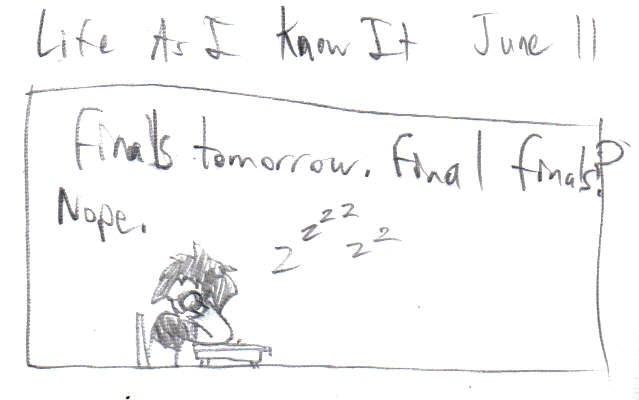 Life As I Know It June 11
Finals tomorrow. Final finals?
Nope.
z z z z z z